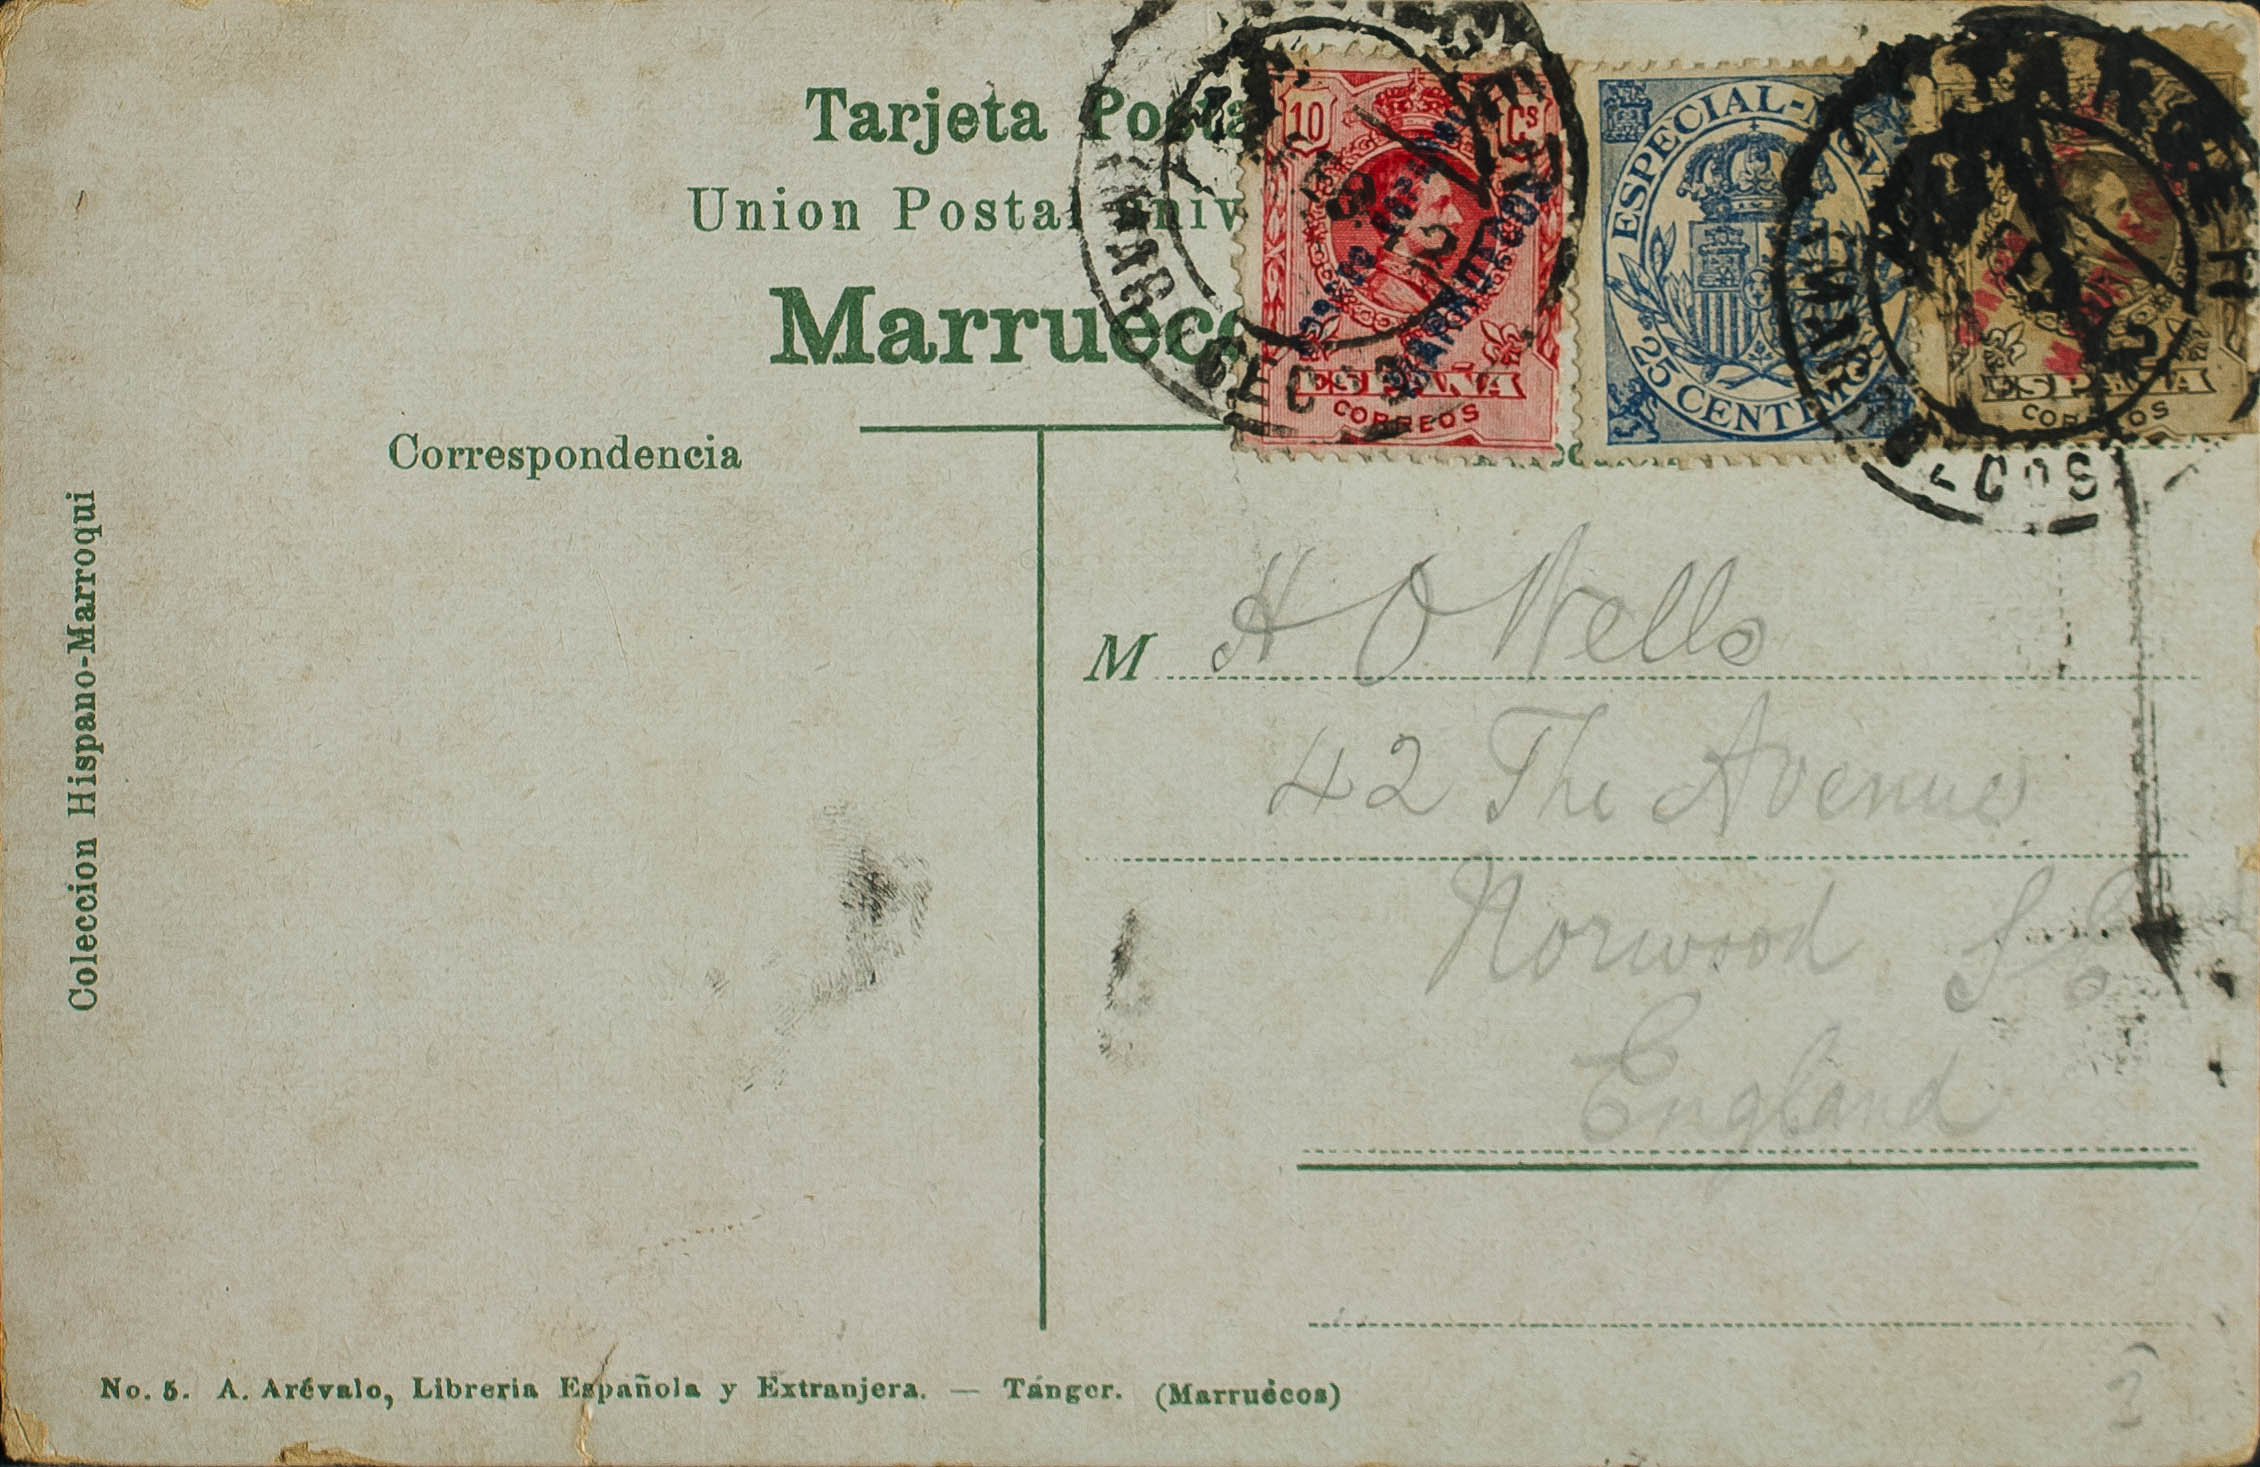 Tarjeta Posta
Union Postal univ
Marruecos
10 Cs
ESPAÑA
CORREOS
ESPECIAL-MÓV
25 CENTIMOS
MARRUECOS
ESPAÑA
CORREOS
Correspondencia
Coleccion Hispano-Marroqui
M H O Wells
42 The Avenue
Norwood S E
England
No. 5. A. Arévalo, Libreria Española y Extranjera. — Tánger. (Marruécos)